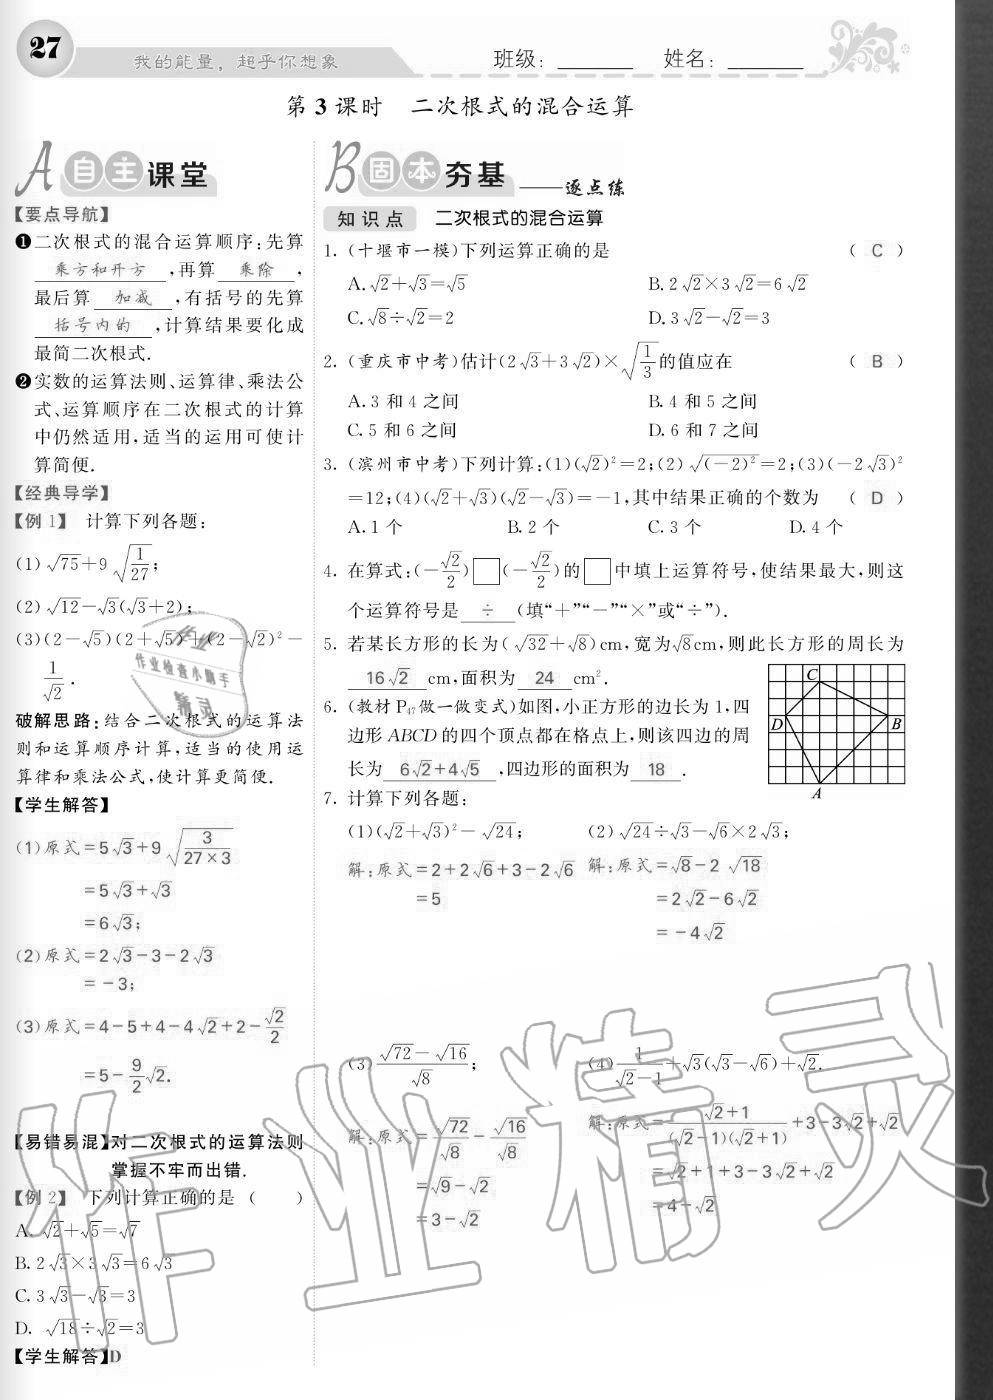 27
我的能量，超乎你想象
班级：______ 姓名：______
第3课时 二次根式的混合运算
A 自主课堂
【要点导航】
❶二次根式的混合运算顺序:先算
乘方和开方,再算 乘除,
最后算 加减,有括号的先算
括号内的,计算结果要化成
最简二次根式.
❷实数的运算法则、运算律、乘法公
式、运算顺序在二次根式的计算
中仍然适用,适当的运用可使计
算简便.
【经典导学】
【例1】 计算下列各题:
(1)√75+9√(1/27);
(2)√12-√3(√3+2);
(3)(2-√5)(2+√5)+(2-√2)²-
1/√2.
破解思路:结合二次根式的运算法
则和运算顺序计算,适当的使用运
算律和乘法公式,使计算更简便.
【学生解答】
(1)原式=5√3+9√(3/(27×3))
=5√3+√3
=6√3;
(2)原式=2√3-3-2√3
=-3;
(3)原式=4-5+4-4√2+2-√2/2
=5-(9/2)√2.
【易错易混】对二次根式的运算法则
掌握不牢而出错.
【例2】 下列计算正确的是( )
A. √2+√5=√7
B. 2√3×3√3=6√3
C. 3√3-√3=3
D. √18÷√2=3
【学生解答】D
B 固本夯基 ——逐点练
知识点 二次根式的混合运算
1. (十堰市一模)下列运算正确的是 ( C )
A. √2+√3=√5 B. 2√2×3√2=6√2
C. √8÷√2=2 D. 3√2-√2=3
2. (重庆市中考)估计(2√3+3√2)×√(1/3)的值应在 ( B )
A. 3和4之间 B. 4和5之间
C. 5和6之间 D. 6和7之间
3. (滨州市中考)下列计算:(1)(√2)²=2;(2)√(-2)²=2;(3)(-2√3)²
=12;(4)(√2+√3)(√2-√3)=-1,其中结果正确的个数为 ( D )
A. 1个 B. 2个 C. 3个 D. 4个
4. 在算式:(-√2/2)□(-√2/2)的□中填上运算符号,使结果最大,则这
个运算符号是 ÷ (填“+”“-”“×”或“÷”).
5. 若某长方形的长为(√32+√8)cm,宽为√8cm,则此长方形的周长为
16√2 cm,面积为 24 cm².
6. (教材P47做一做变式)如图,小正方形的边长为1,四
边形ABCD的四个顶点都在格点上,则该四边的周
长为 6√2+4√5 ,四边形的面积为 18 .
C
D
B
A
7. 计算下列各题:
(1)(√2+√3)²-√24; (2)√24÷√3-√6×2√3;
解:原式=2+2√6+3-2√6 解:原式=√8-2√18
=5 =2√2-6√2
=-4√2
(3)(√72-√16)/√8; (4)1/(√2-1)+√3(√3-√6)+√2.
解:原式=√72/√8-√16/√8 解:原式=(√2+1)/((√2-1)(√2+1))+3-3√2+√2
=√9-√2 =√2+1+3-3√2+√2
=3-√2 =4-√2
作业
作业检查小助手
精灵
作业精灵